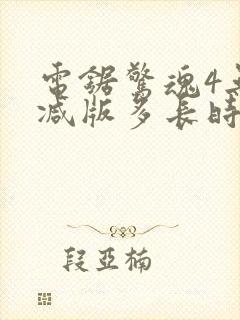 電鋸驚魂4無
减版多長時
段亞楠